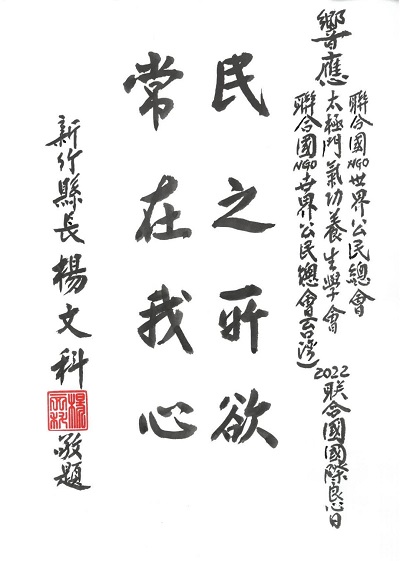 響應
聯合國NGO世界公民總會
太極門氣功養生學會
聯合國NGO世界公民總會(台灣)
2022联合國國際良心日
民之所欲
常在我心
新竹縣長楊文科
楊文科
敬題